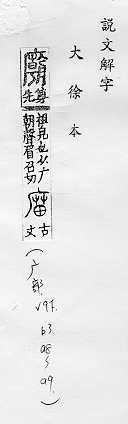 說文解字
大徐本
廟 尊先祖皃也从广朝聲眉召切 庿 古文
(广部